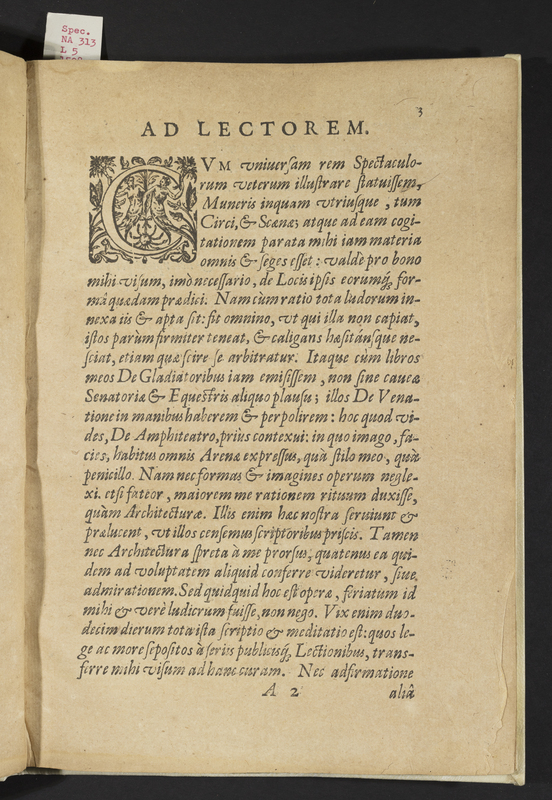 Spec.
NA 313
L 5
3
AD LECTOREM.
CVM vniuersam rem Spectaculo-
rum veterum illustrare statuissem,
Muneris inquam vtriusque, tum
Circi, & Scænæ; atque ad eam cogi-
tationem parata mihi iam materia
omnis & seges esset: valdè pro bono
mihi visum, imò necessario, de Locis ipsis eorumq́; for-
mâ quædam prædici. Nam cùm ratio tota ludorum in-
nexa iis & apta sit: fit omnino, vt qui illa non capiat,
istos parùm firmiter teneat, & caligans hæsitánsque ne-
sciat, etiam quæ scire se arbitratur. Itaque cùm libros
meos De Gladiatoribus iam emisissem, non sine caueæ
Senatoriæ & Equestris aliquo plausu; illos De Vena-
tione in manibus haberem & perpolirem: hoc quod vi-
des, De Amphiteatro, priùs contexui: in quo imago, fa-
cies, habitus omnis Arenæ expressus, quà stilo meo, quà
penicillo. Nam nec formas & imagines operum negle-
xi. etsi fateor, maiorem me rationem rituum duxisse,
quàm Architecturæ. Illis enim hæc nostra seruiunt &
prælucent, vt illos censemus scriptoribus priscis. Tamen
nec Architectura spreta à me prorsus, quatenus ea qui-
dem ad voluptatem aliquid conferre videretur, siue
admirationem. Sed quidquid hoc est operæ, feriatum id
mihi & verè ludicrum fuisse, non nego. Vix enim duo-
decim dierum tota ista scriptio & meditatio est: quos le-
ge ac more sepositos à seriis publicisq́; Lectionibus, trans-
ferre mihi visum ad hanc curam. Nec adfirmatione
A 2 aliâ